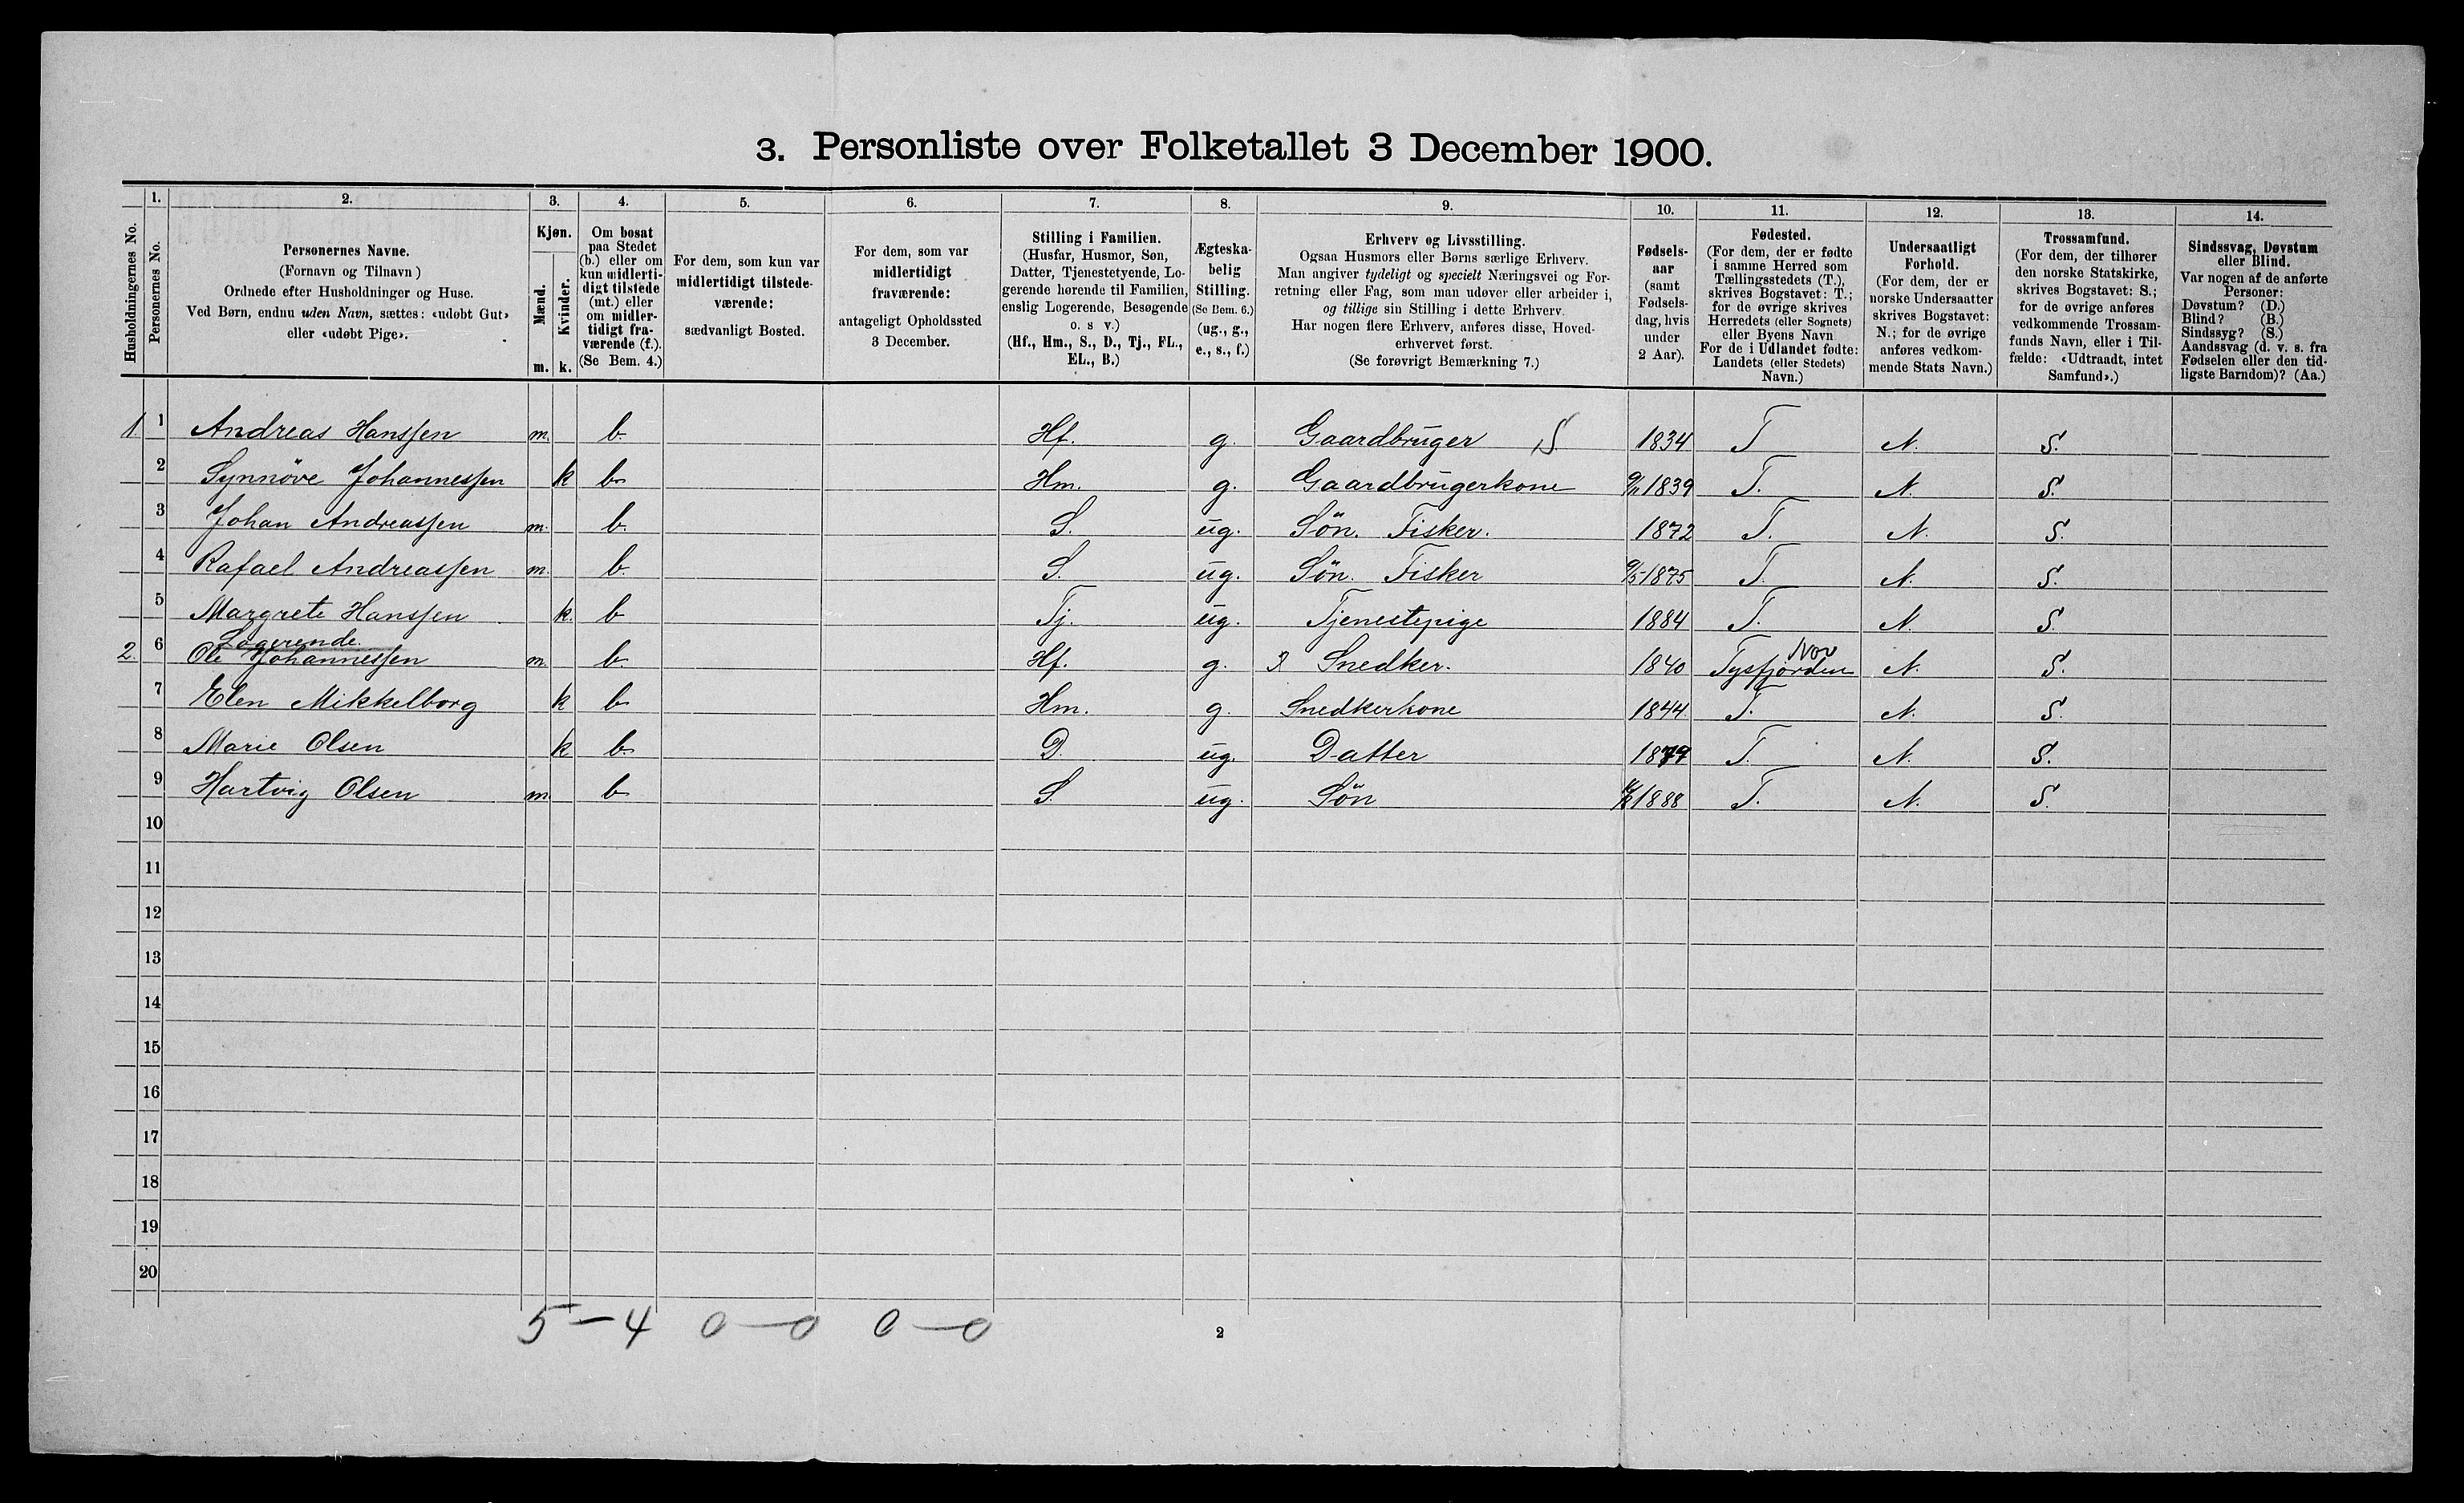 3. Personliste over Folketallet 3 December 1900.
Husholdningernes No.
1.
Personernes No.
2.
Personernes Navne.
(Fornavn og Tilnavn)
Ordnede efter Husholdninger og Huse.
Ved Børn, endnu uden Navn, sættes: «udøbt Gut»
eller «udøbt Pige».
3.
Kjøn.
Mænd.
Kvinder.
m. k.
4.
Om bosat
paa Stedet
(b.) eller om
kun midlerti-
digt tilstede
(mt.) eller
om midler-
tidigt fra-
værende (f.).
(Se Bem. 4.)
5.
For dem, som kun var
midlertidigt tilstede-
værende:
sædvanligt Bosted.
6.
For dem, som var
midlertidigt
fraværende:
antageligt Opholdssted
3 December.
7.
Stilling i Familien.
(Husfar, Husmor, Søn,
Datter, Tjenestetyende, Lo-
gerende hørende til Familien,
enslig Logerende, Besøgende
o. s v.)
(Hf., Hm., S., D., Tj., FL.,
EL., B.)
8.
Ægteska-
belig
Stilling.
(Se Bem. 6.)
(ug., g.,
e., s., f.)
9.
Erhverv og Livsstilling.
Ogsaa Husmors eller Børns særlige Erhverv.
Man angiver tydeligt og specielt Næringsvei og For-
retning eller Fag, som man udøver eller arbeider i,
og tillige sin Stilling i dette Erhverv.
Har nogen flere Erhverv, anføres disse, Hoved-
erhvervet først.
(Se forøvrigt Bemærkning 7.)
10.
Fødsels-
aar
(samt
Fødsels-
dag, hvis
under
2 Aar).
11.
Fødested.
(For dem, der er fødte
i samme Herred som
Tællingsstedets (T.),
skrives Bogstavet: T.;
for de øvrige skrives
Herredets (eller Sognets)
eller Byens Navn
For de i Udlandet fødte:
Landets (eller Stedets)
Navn.)
12.
Undersaatligt
Forhold.
(For dem, der er
norske Undersaatter
skrives Bogstavet:
N.; for de øvrige
anføres vedkom-
mende Stats Navn.)
13.
Trossamfund.
(For dem, der tilhører
den norske Statskirke,
skrives Bogstavet: S.;
for de øvrige anføres
vedkommende Trossam-
funds Navn, eller i Til-
fælde: «Udtraadt, intet
Samfund».)
14.
Sindssvag, Døvstum
eller Blind.
Var nogen af de anførte
Personer:
Døvstum? (D.)
Blind? (B.)
Sindssyg? (S.)
Aandssvag (d. v. s. fra
Fødselen eller den tid-
ligste Barndom)? (Aa.)
1. 1 Andreas Hanssen m. b. Hf. g. Gaardbruger S. 1834 T N. S.
2 Synnöve Johannessen k b. Hm. g. Gaardbrugerkone 1839 T. N. S.
3 Johan Andreassen m. b. S. ug. Sön. Fisker. 1872 T. N. S.
4 Rafael Andreassen m. b. S. ug. Sön. Fisker 1875 T. N. S.
5 Margrete Hanssen k. b Tj. ug. Tjenestepige 1884 T. N. S.
Logerende.
2. 6 Ole Johannessen m. b. Hf. g. Snedker. 1840 Tysfjorden Nor N. S.
7 Elen Mikkelborg k b. Hm. g. Snedkerkone 1844. T. N. S.
8 Marie Olsen k b. D. ug. Datter 1879 T. N. S.
9 Hartvig Olsen m. b S. ug. Sön 1888 T. N. S.
10
11
12
13
14
15
16
17
18
19
20
5 — 4 0 — 0 0 — 0
2